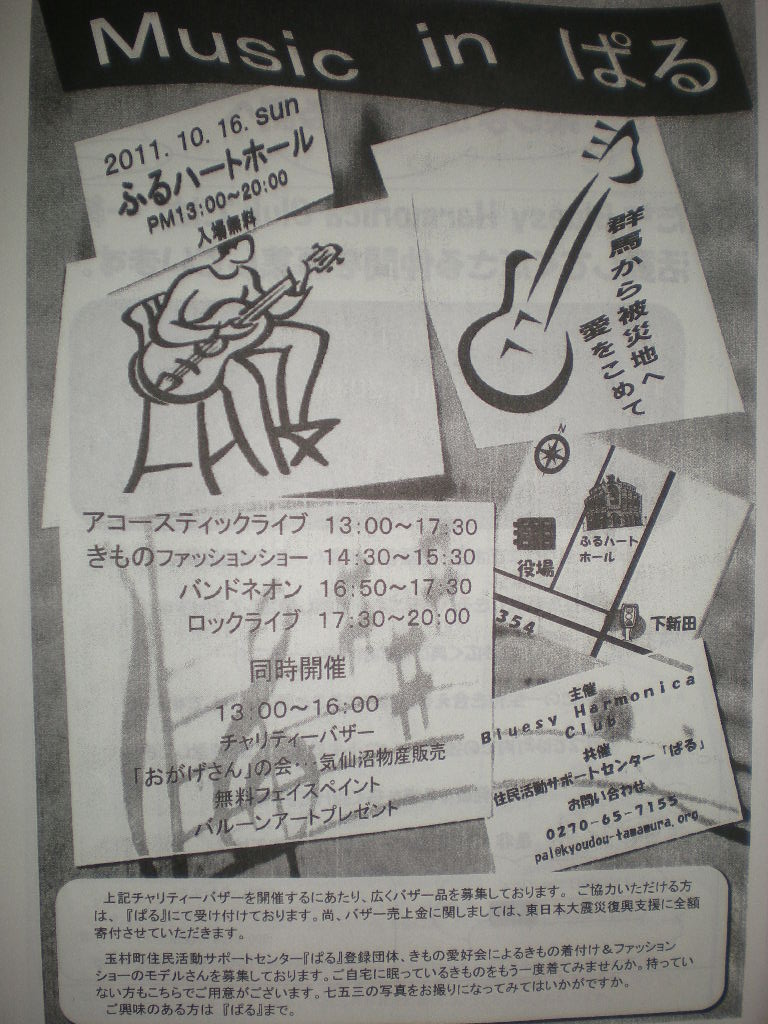 Music in ぱる
2011. 10. 16. sun
ふるハートホール
PM13:00～20:00
入場無料
群馬から被災地へ
愛をこめて
アコースティックライブ 13:00～17:30
きものファッションショー 14:30～15:30
バンドネオン 16:50～17:30
ロックライブ 17:30～20:00
同時開催
13:00～16:00
チャリティーバザー
「おがげさん」の会･･･気仙沼物産販売
無料フェイスペイント
バルーンアートプレゼント
N
ふるハート
ホール
役場
354
下新田
主催
Bluesy Harmonica
Club
共催
住民活動サポートセンター「ぱる」
お問い合わせ
0270-65-7155
pal@kyoudou-tamamura.org
上記チャリティーバザーを開催するにあたり、広くバザー品を募集しております。ご協力いただける方
は、『ぱる』にて受け付けております。尚、バザー売上金に関しましては、東日本大震災復興支援に全額
寄付させていただきます。
玉村町住民活動サポートセンター『ぱる』登録団体、きもの愛好会によるきもの着付け＆ファッション
ショーのモデルさんを募集しております。ご自宅に眠っているきものをもう一度着てみませんか。持ってい
ない方もこちらでご用意がございます。七五三の写真をお撮りになってみてはいかがですか。
ご興味のある方は『ぱる』まで。